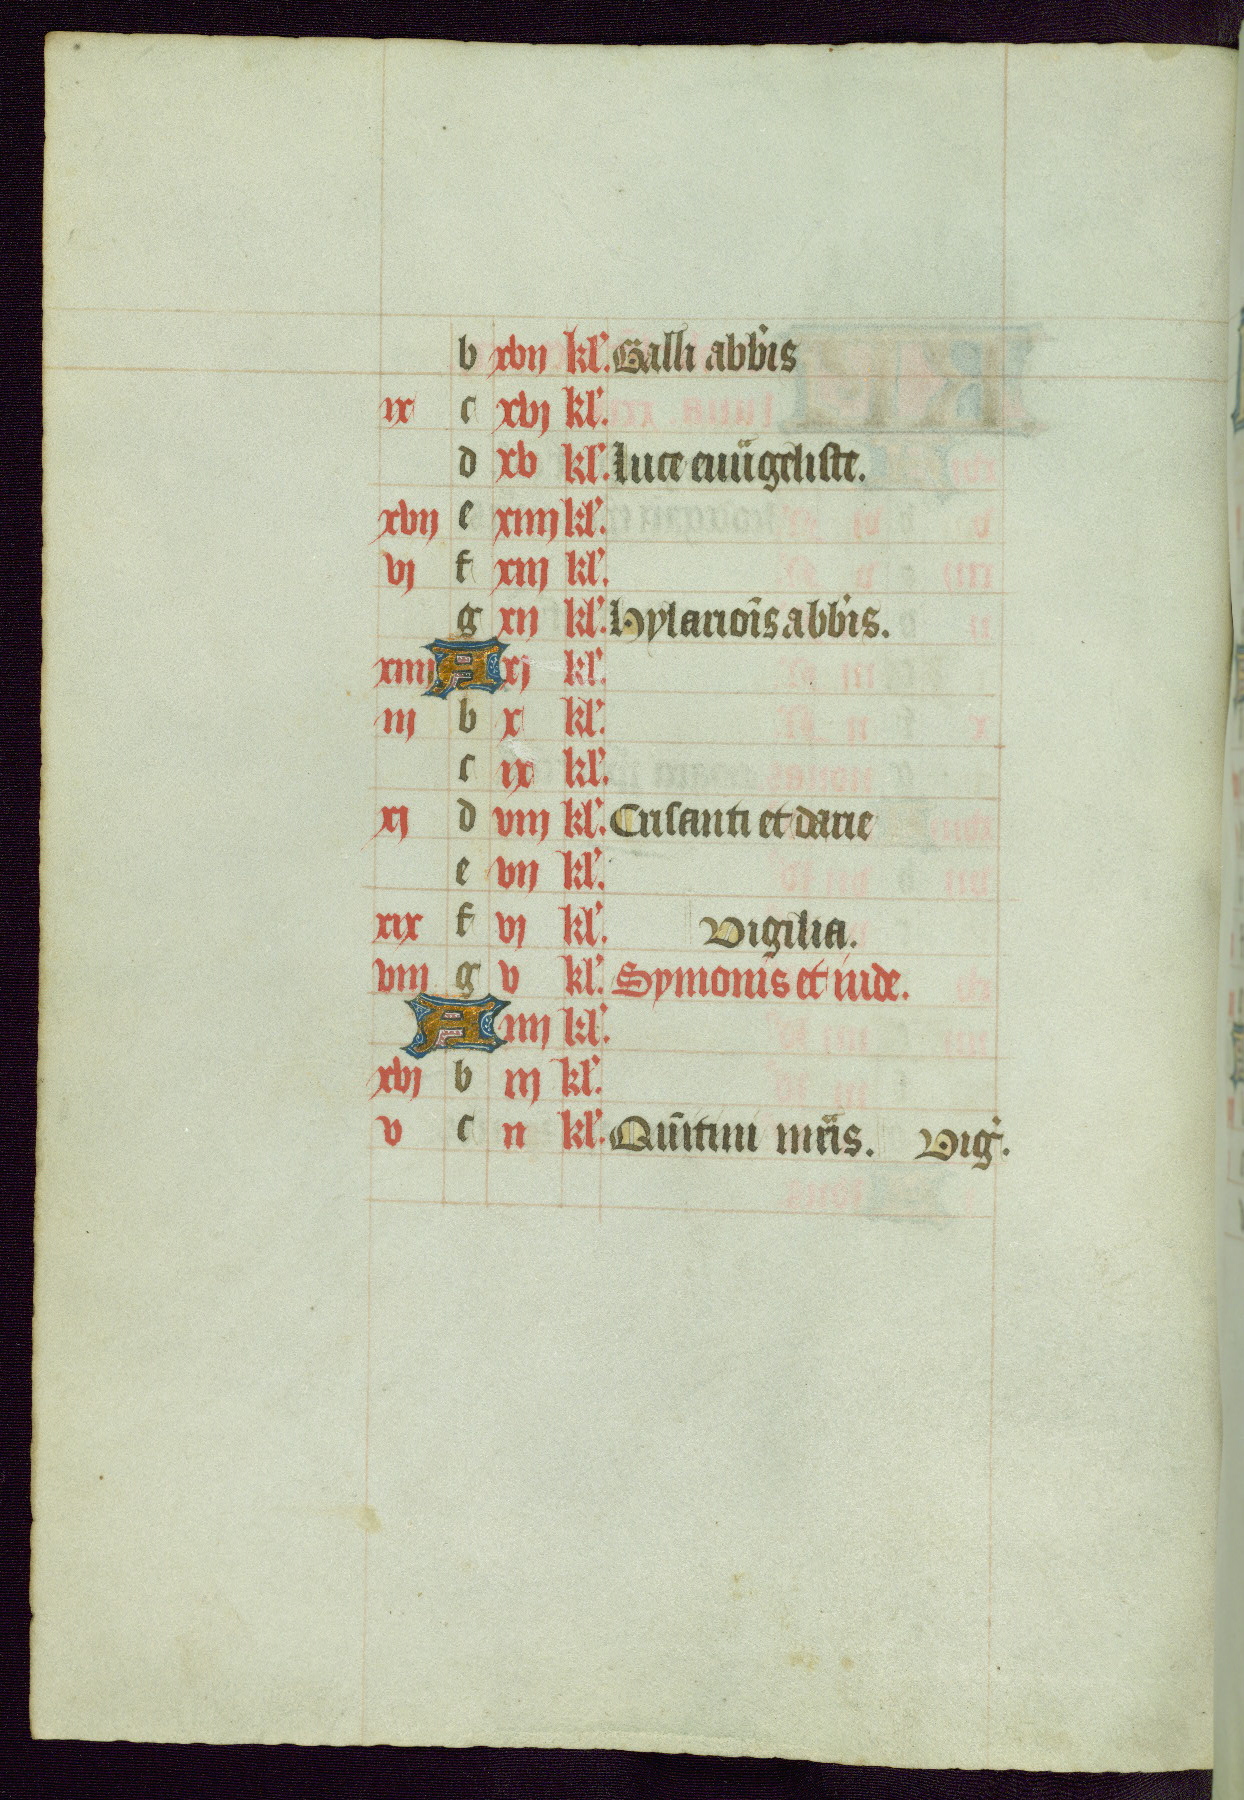 b xvij kl'. Galli abb'is
ix c xvj kl'.
d xv kl'. Luce euuãgeliste.
xvij e xiiij kl'.
vj f xiij kl'.
g xij kl'. Hylariõis abb'is.
xiiij A xj kl'.
iij b x kl'.
c ix kl'.
xj d viij kl'. Crisanti et darie
e vij kl'.
xix f vj kl'. Vigilia.
viij g v kl'. Symonis et iude.
A iiij kl'.
xvj b iij kl'.
v c ii kl'. Quĩtini mr̃is. Vig'.